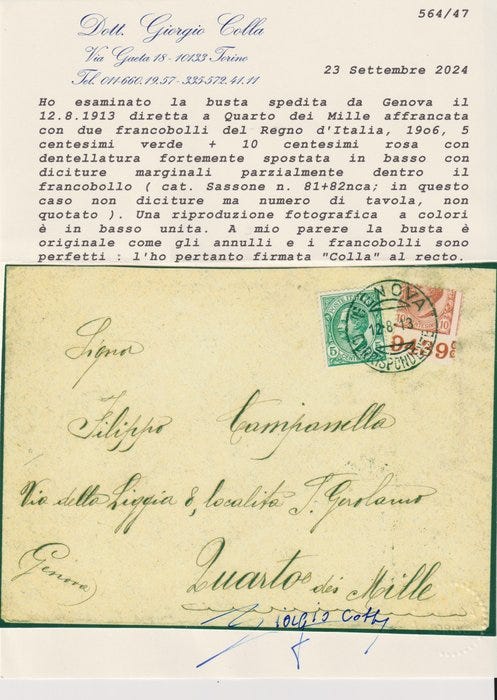 564/47
Dott. Giorgio Colla
Via Gaeta 18 - 10133 Torino
Tel. 011 660.19.57 - 335-572.41.11
23 Settembre 2024
Ho esaminato la busta spedita da Genova il
12.8.1913 diretta a Quarto dei Mille affrancata
con due francobolli del Regno d'Italia, 19o6, 5
centesimi verde + 10 centesimi rosa con
dentellatura fortemente spostata in basso con
diciture marginali parzialmente dentro il
francobollo ( cat. Sassone n. 81+82nca; in questo
caso non diciture ma numero di tavola, non
quotato ). Una riproduzione fotografica a colori
è in basso unita. A mio parere la busta è
originale come gli annulli e i francobolli sono
perfetti : l'ho pertanto firmata "Colla" al recto.
GENOVA
12-8-13
CORRISPONDENZE
5
10
9439
Signor
Filippo Campanella
Via della Liggia 8, località S. Gerolamo
Quarto dei Mille
(Genova)
Giorgio Colla